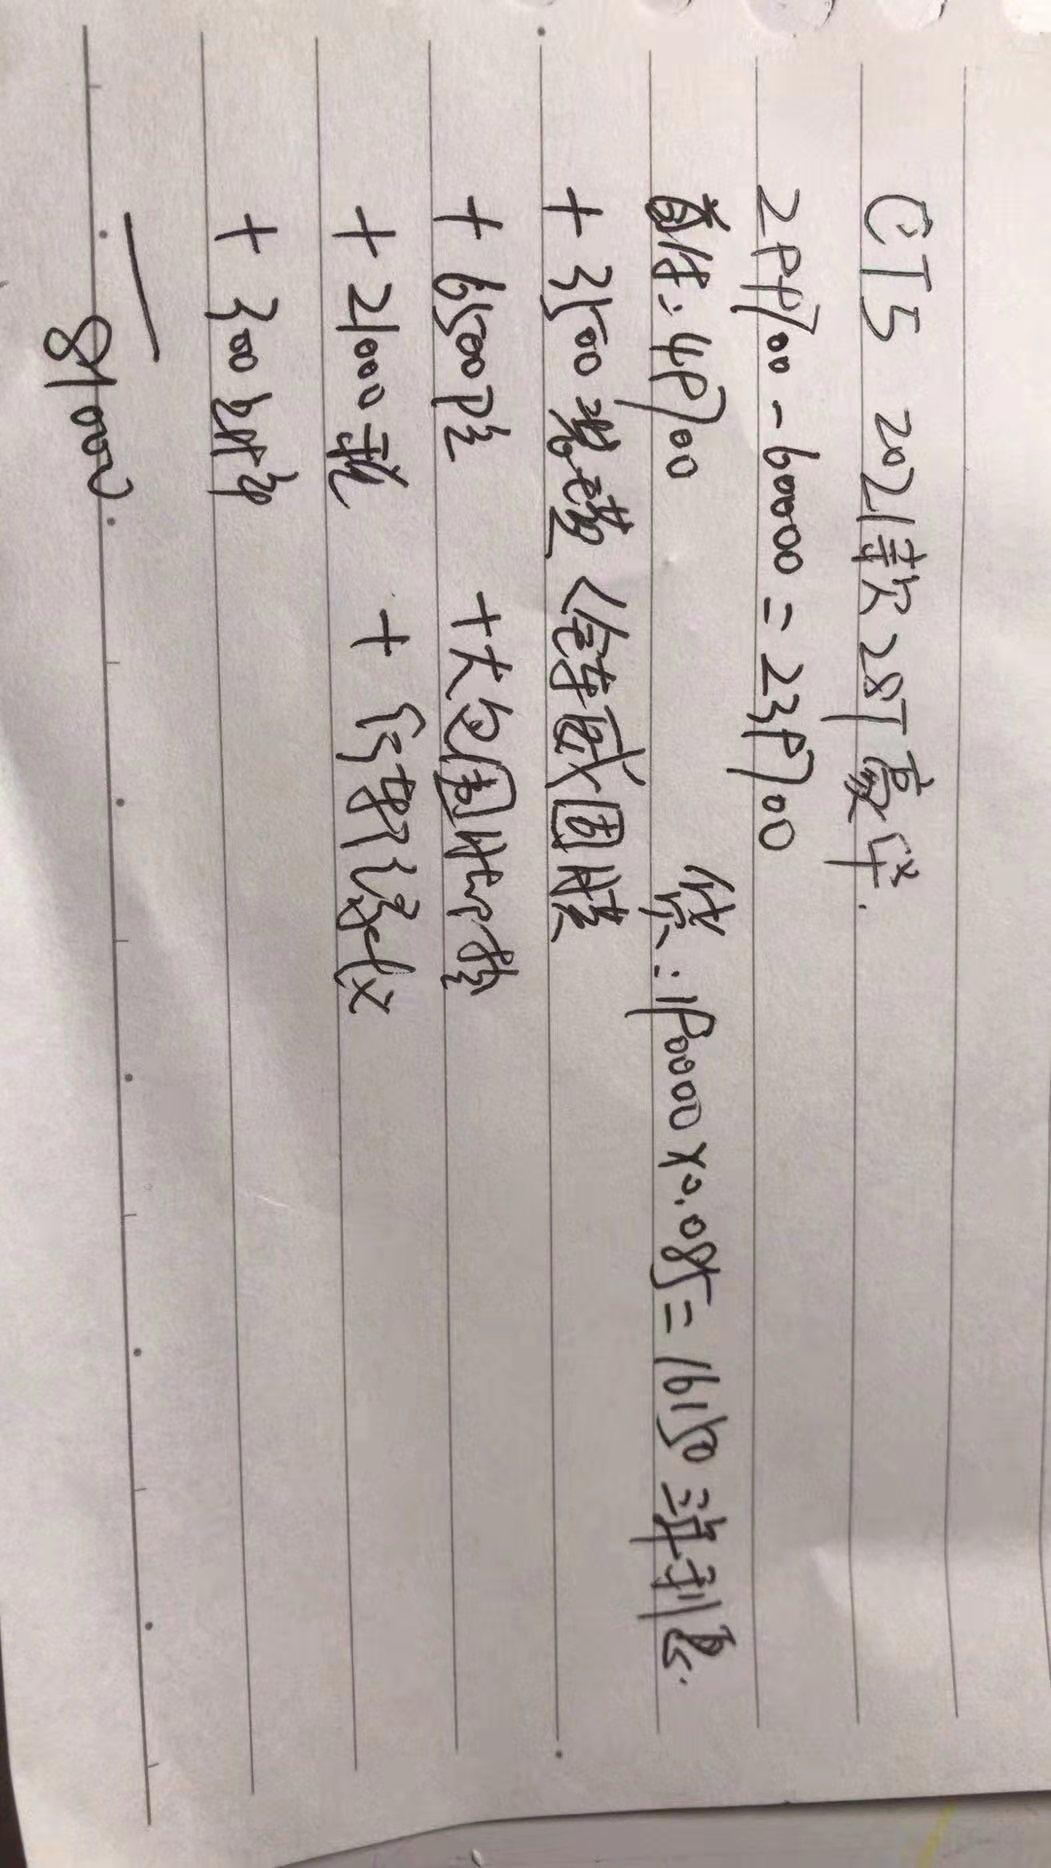 CT5 2021款28T豪华.
299700-60000=239700
首付:49700 贷:190000×0.085=16150 三年利息.
+3500装潢 (全车威固膜
+6500险 +大包围脚垫
+21000税 +行车记录仪
+300上牌
81000